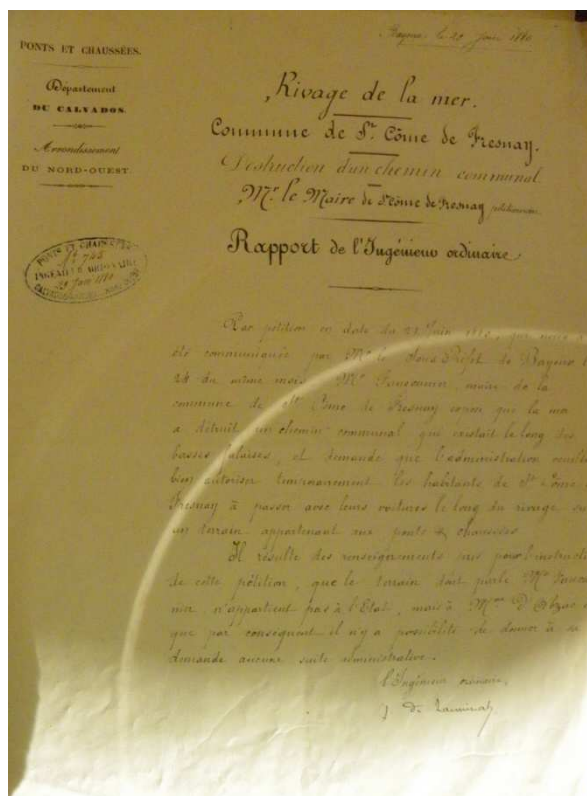 Bayeux le 29 Juin 1880
PONTS ET CHAUSSÉES.
Département
DU CALVADOS.
Arrondissement
DU NORD-OUEST.
PONTS ET CHAUSSÉES
N° 745
INGÉNIEUR ORDINAIRE
29 Juin 1880
Rivage de la mer.
Commune de St. Côme de Fresnay.
Destruction d'un chemin communal.
Mr. le Maire de St Côme de Fresnay pétitionnaire
Rapport de l'Ingénieur ordinaire
Par pétition en date du Juin, que nous a
été communiquée par Mr le Sous Préfet de Bayeux le
du même mois, Mr maire de la
commune de St Côme de Fresnay expose que la mer
a détruit un chemin communal qui existait le long des
basses falaises, et demande que l'administration veuille
bien autoriser les habitants de St Côme
Fresnay à passer avec leurs voitures le long du rivage sur
un terrain appartenant aux ponts & chaussées
Il résulte des renseignements pris pour l'instruction
de cette pétition, que le terrain dont parle Mr
nier, n'appartient pas à l'Etat, mais à Mme
que par conséquent il n'y a possibilité de donner à sa
demande aucune suite administrative.
l'Ingénieur ordinaire,